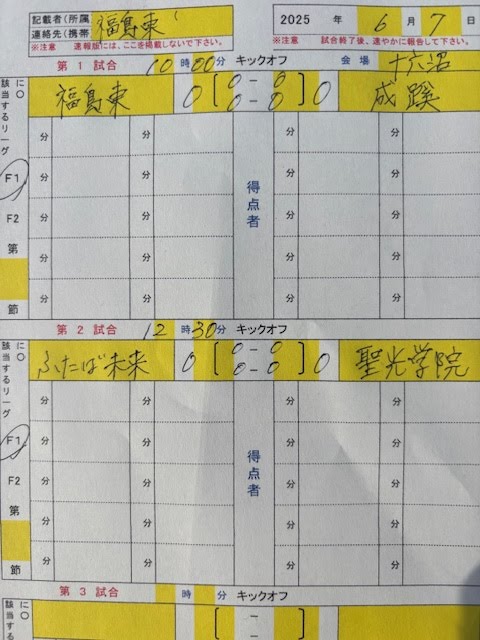 記載者(所属 福島東
連絡先(携帯
※注意 速報版には、ここを掲載しないで下さい。
2025 年 6 月 7 日
※注意 試合終了後、速やかに報告して下さい。
第 1 試合 10 時 00 分 キックオフ 会場 十六沼
該当するリーグに〇
福島東 0 [ 0 - 0 0 - 0 ] 0 成蹊
分 分 分 分
F1 分 分 分 分
得点者
F2 分 分 分 分
第 分 分 分 分
節 分 分 分 分
第 2 試合 12 時 30 分 キックオフ
該当するリーグに〇
ふたば未来 0 [ 0 - 0 0 - 0 ] 0 聖光学院
分 分 分 分
F1 分 分 分 分
得点者
F2 分 分 分 分
第 分 分 分 分
節 分 分 分 分
第 3 試合 時 分 キックオフ
該当する に〇
[ - - ]